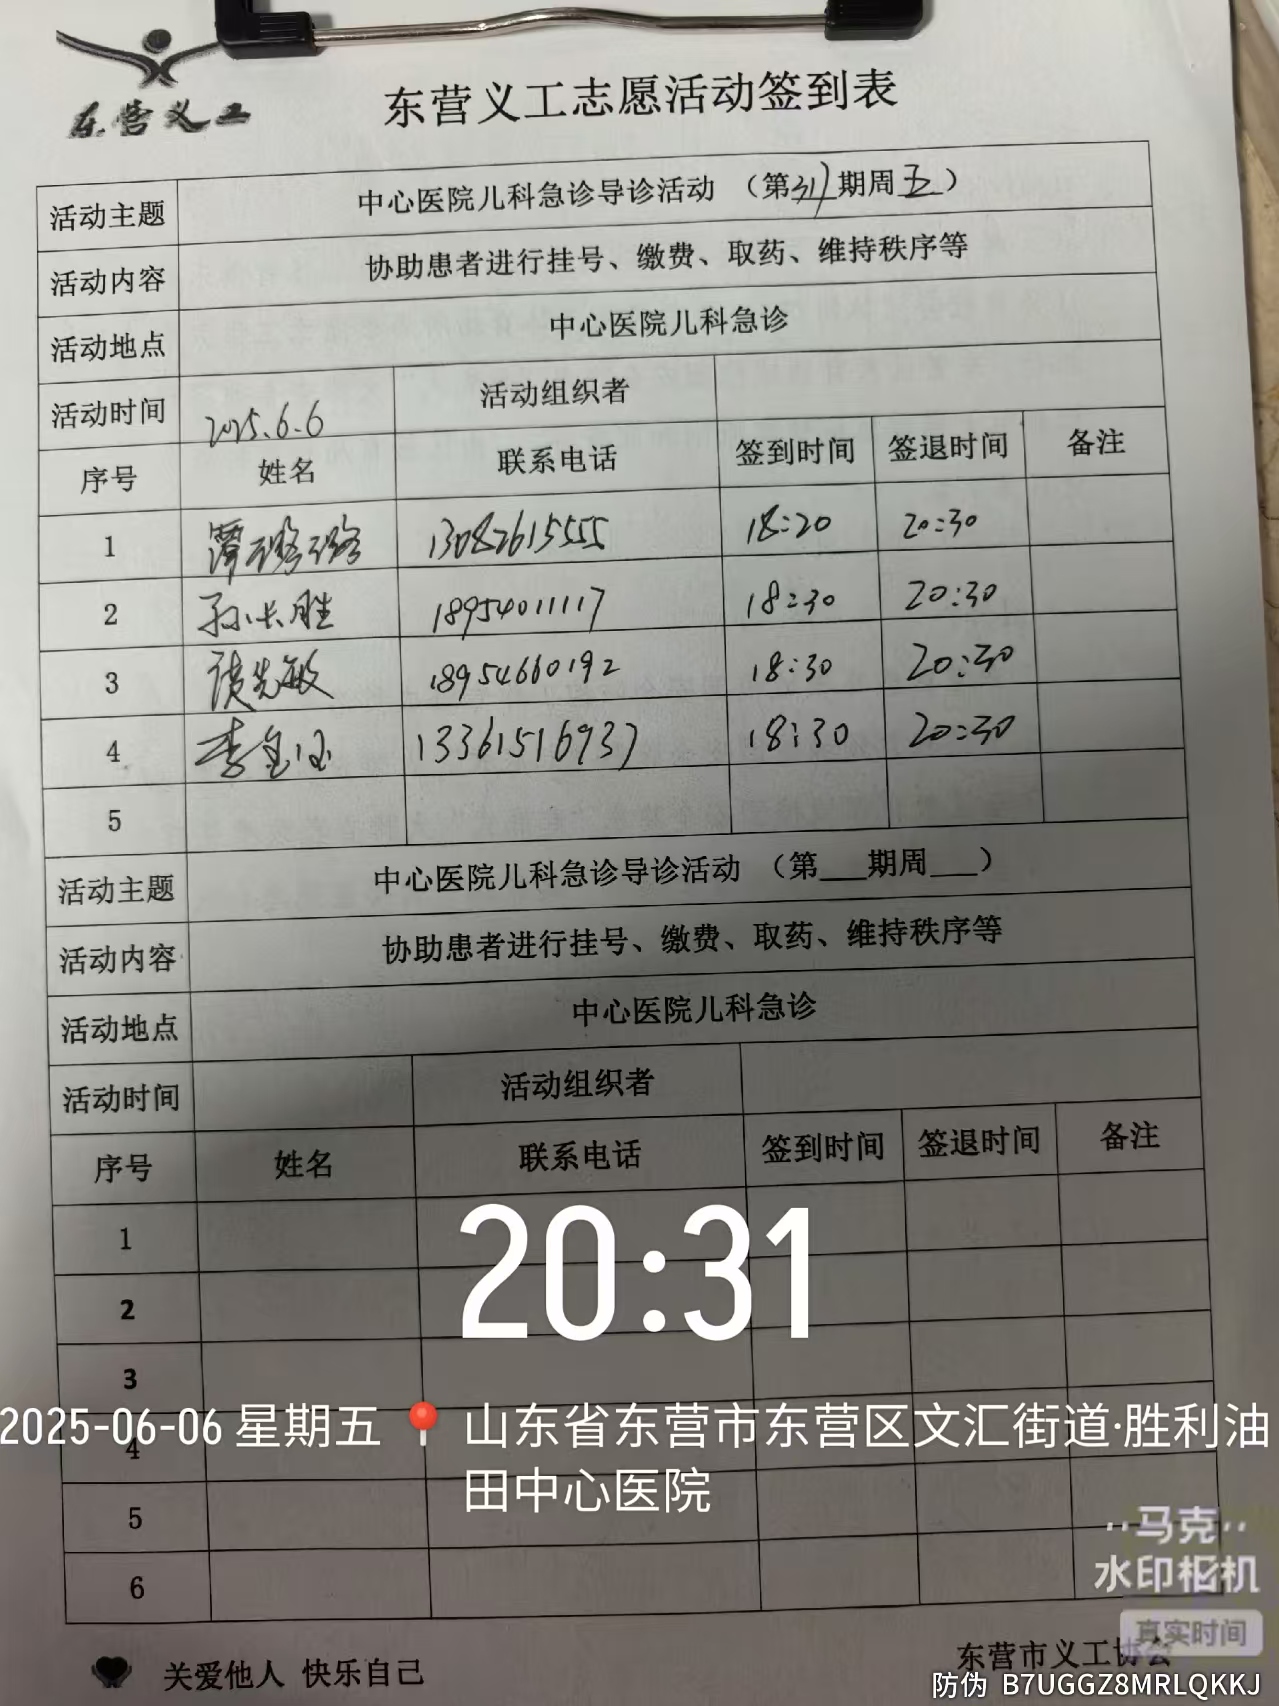 东营义工
东营义工志愿活动签到表
活动主题 中心医院儿科急诊导诊活动 （第317期周五）
活动内容 协助患者进行挂号、缴费、取药、维持秩序等
活动地点 中心医院儿科急诊
活动时间 2025.6.6 活动组织者
序号 姓名 联系电话 签到时间 签退时间 备注
1 覃璐璐 13082615555 18:20 20:30
2 孙长胜 18954011117 18:30 20:30
3 18954660192 18:30 20:30
4 13361516937 18:30 20:30
5
活动主题 中心医院儿科急诊导诊活动 （第___期周___）
活动内容 协助患者进行挂号、缴费、取药、维持秩序等
活动地点 中心医院儿科急诊
活动时间 活动组织者
序号 姓名 联系电话 签到时间 签退时间 备注
1
2
3
4
5
6
20:31
2025-06-06 星期五 山东省东营市东营区文汇街道·胜利油
田中心医院
马克
水印相机
真实时间
关爱他人 快乐自己
东营市义工协会
防伪 B7UGGZ8MRLQKKJ